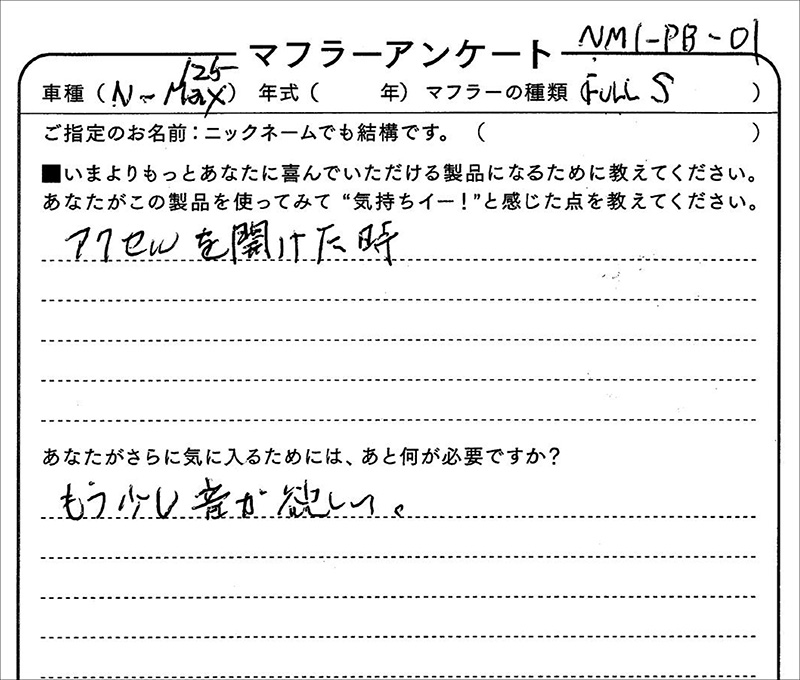 マフラーアンケート NM1-PB-01
車種（N-Max 125） 年式（ 年） マフラーの種類 FULL S ）
ご指定のお名前：ニックネームでも結構です。（ ）
■いまよりもっとあなたに喜んでいただける製品になるために教えてください。
あなたがこの製品を使ってみて“気持ちイー！”と感じた点を教えてください。
アクセルを開けた時
あなたがさらに気に入るためには、あと何が必要ですか？
もう少し音が欲しい。